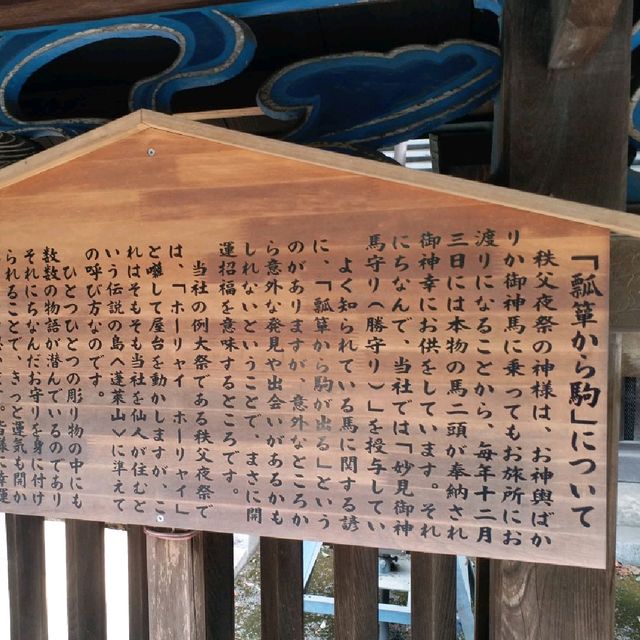 「瓢箪から駒」について
秩父夜祭の神様は、お神輿ばか
りか御神馬に乗ってもお旅所にお
渡りになることから、毎年十二月
三日には本物の馬二頭が奉納され
御神幸にお供をしています。それ
にちなんで、当社では「妙見御神
馬守り(勝守り)」を授与してい
よく知られている馬に関する諺
に、「瓢箪から駒が出る」という
のがありますが、意外なところか
ら意外な発見や出会いがあるかも
しれないということで、まさに開
運招福を意味するところです。
当社の例大祭である秩父夜祭で
は、「ホーリャイ ホーリャイ」
と囃して屋台を動かしますが、こ
れはそもそも当社を仙人が住むと
いう伝説の島へ蓬莱山〉に準えて
の呼び方なのです。
ひとつひとつの彫り物の中にも
数数の物語が潜んでいるのであり
それにちなんだお守りを身に付け
られることで、きっと運気も開か